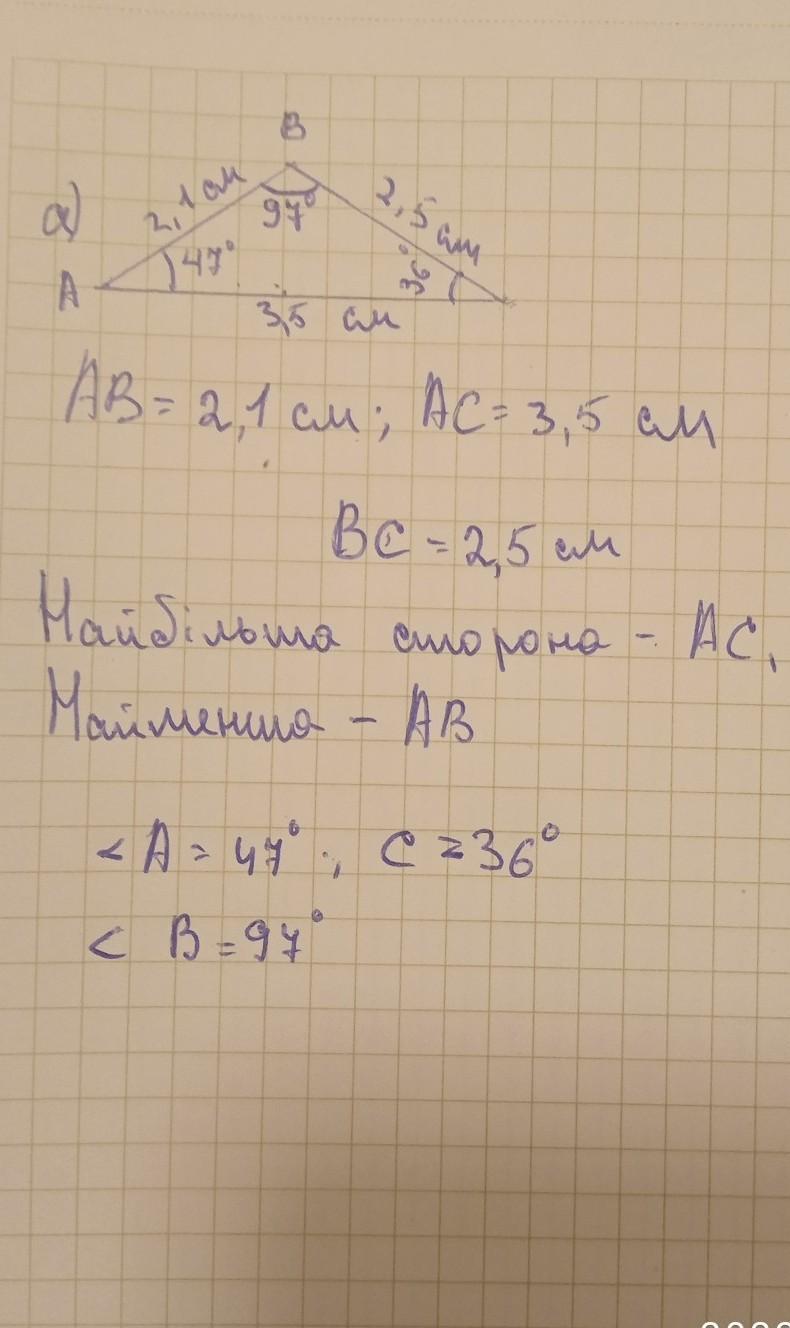 B
а)
2,1 см
97°
2,5 см
A
47°
36°
3,5 см
AB = 2,1 см; AC = 3,5 см
BC = 2,5 см
Найбільша сторона - AC,
Найменша - AB
< A = 47°; C = 36°
< B = 97°